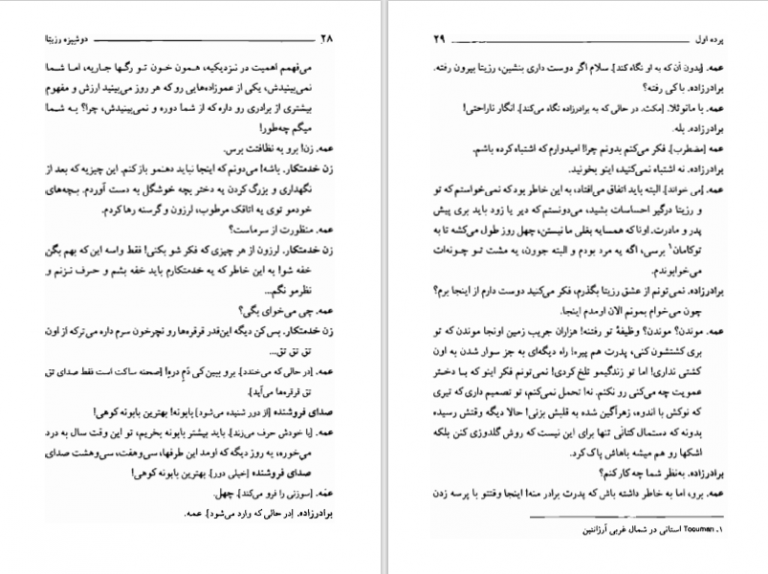 ۲۸ دوشیزه رزیتا
می‌فهمم اهمیت در نزدیکیه، همون خون تو رگها جاریه، اما شما
نمی‌بینیدش، یکی از عموزاده‌هایی رو که هر روز می‌بینید ارزش و مفهوم
بیشتری از برادری رو داره که از شما دوره و نمی‌بینیدش، چرا؟ به شما
میگم چه‌طور!
عمه. زن! برو به نظافتت برس.
زن خدمتکار. باشه! می‌دونم که اینجا نباید دهنمو بازکنم. این چیزیه که بعد از
نگهداری و بزرگ کردن یه دختر بچه خوشگل به دست آوردم. بچه‌های
خودمو توی یه اتاقک مرطوب، لرزون و گرسنه رها کردم.
عمه. منظورت از سرماست؟
زن خدمتکار. لرزون از هر چیزی که فکر شو بکنی! فقط واسه این که بهم بگن
خفه شو! به این خاطر که یه خدمتکارم باید خفه بشم و حرف نزنم و
نظرمو نگم...
عمه. چی می‌خوای بگی؟
زن خدمتکار. بس کن دیگه این‌قدر قرقره‌ها رو نچرخون سرم داره می‌ترکه از اون
تق تق تق...
عمه. [در حالی که می‌خندد]. برو ببین کی دَمِ درِه! [صحنه ساکت است فقط صدای تق
تق قرقره‌ها می‌آید].
صدای فروشنده [از دور شنیده می‌شود] بابونه! بهترین بابونه کوهی!
عمه. [با خودش حرف می‌زند]. باید بیشتر بابونه بخریم، تو این وقت سال به درد
می‌خوره، یه روز دیگه که اومد این طرفها، سی‌وهفت، سی‌وهشت صدای
صدای فروشنده [خیلی دور]. بهترین بابونه کوهی!
عمّه. [سوزنی را فرو می‌کند]. چهل.
برادرزاده. [در حالی که وارد می‌شود]. عمه.
پرده اول ۲۹
عمه. [بدون آن که به او نگاه کند]. سلام اگر دوست داری بنشین، رزیتا بیرون رفته.
برادرزاده. با کی رفته؟
عمه. با مانوئلا. [مکث. در حالی که به برادرزاده نگاه می‌کند]. انگار ناراحتی!
برادرزاده. بله.
عمه [مضطرب]. فکر می‌کنم بدونم چرا! امیدوارم که اشتباه کرده باشم.
برادرزاده. نه اشتباه نمی‌کنید، اینو بخونید.
عمه. [می خواند]. البته باید اتفاق می‌افتاد، به این خاطر بود که نمی‌خواستم که تو
و رزیتا درگیر احساسات بشید، می‌دونستم که دیر یا زود باید بری پیش
پدر و مادرت. اونا که همسایه بغلی ما نیستن، چهل روز طول می‌کشه تا به
توکامان۱ برسی، اگه یه مرد بودم و البته جوون، یه مشت تو چونه‌ات
می‌خوابوندم.
برادرزاده. نمی‌تونم از عشق رزیتا بگذرم، فکر می‌کنید دوست دارم از اینجا برم؟
چون می‌خوام بمونم الان اومدم اینجا.
عمه. موندن؟ موندن؟ وظیفهٔ تو رفتنه! هزاران جریب زمین اونجا موندن که تو
بری کشتشون کنی، پدرت هم پیره! راه دیگه‌ای به جز سوار شدن به اون
کشتی نداری! اما تو زندگیمو تلخ کردی! نمی‌تونم فکر اینو که با دختر
عمویت چه می‌کنی رو نکنم. نه! تحمل نمی‌کنم، تو تصمیم داری که تیری
که نوکش با اندوه، زهرآگین شده به قلبش بزنی! حالا دیگه وقتش رسیده
بدونه که دستمال کتانی تنها برای این نیست که روش گلدوزی کنن بلکه
اشکها رو هم میشه باهاش پاک کرد.
برادرزاده. به‌نظر شما چه کار کنم؟
عمه. برو، اما به خاطر داشته باش که پدرت برادر منه! اینجا وقتتو با پرسه زدن
۱. Tocuman استانی در شمال غربی آرژانتین